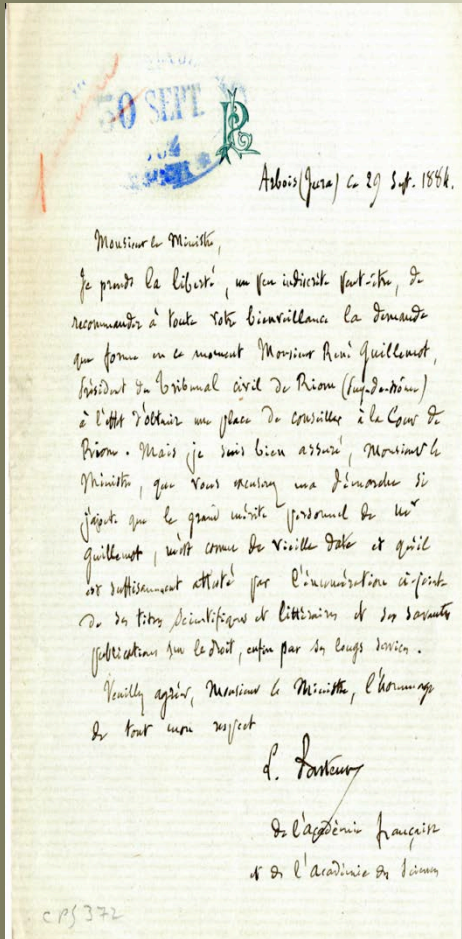 30 SEPT
Arbois (Jura) ce 29 Sept. 1884.
Monsieur le Ministre,
Je prends la liberté, un peu indiscrète peut-être, de
recommander à toute votre bienveillance la demande
que forme en ce moment Monsieur René Guillemot,
Président du Tribunal civil de Riom (Puy-de-Dôme)
à l'effet d'obtenir une place de conseiller à la Cour de
Riom. Mais je suis bien assuré, Monsieur le
Ministre, que vous excuserez ma démarche si
j'ajoute que le grand mérite personnel de Mr
Guillemot, m'est connu de vieille date et qu'il
est suffisamment attesté par l'énumération ci-jointe
de ses titres scientifiques et littéraires et ses savantes
publications sur le droit, enfin par ses longs services.
Veuillez agréer, Monsieur le Ministre, l'hommage
de tout mon respect
L. Pasteur
de l'académie française
et de l'académie des Sciences
CPS 372